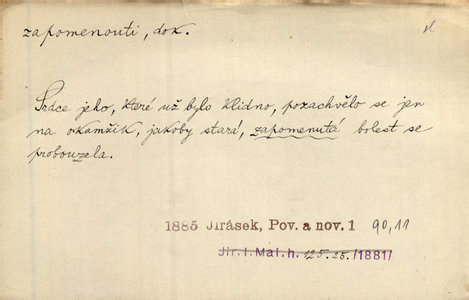 zapomenouti, dok.
Srdce jeho, které už bylo klidno, pozachvělo se jen
na okamžik, jakoby stará, zapomenutá bolest se
probouzela.
1885 Jirásek, Pov. a nov. 1 90,11
Jir. I. Mal. h. 125.25. /1881/